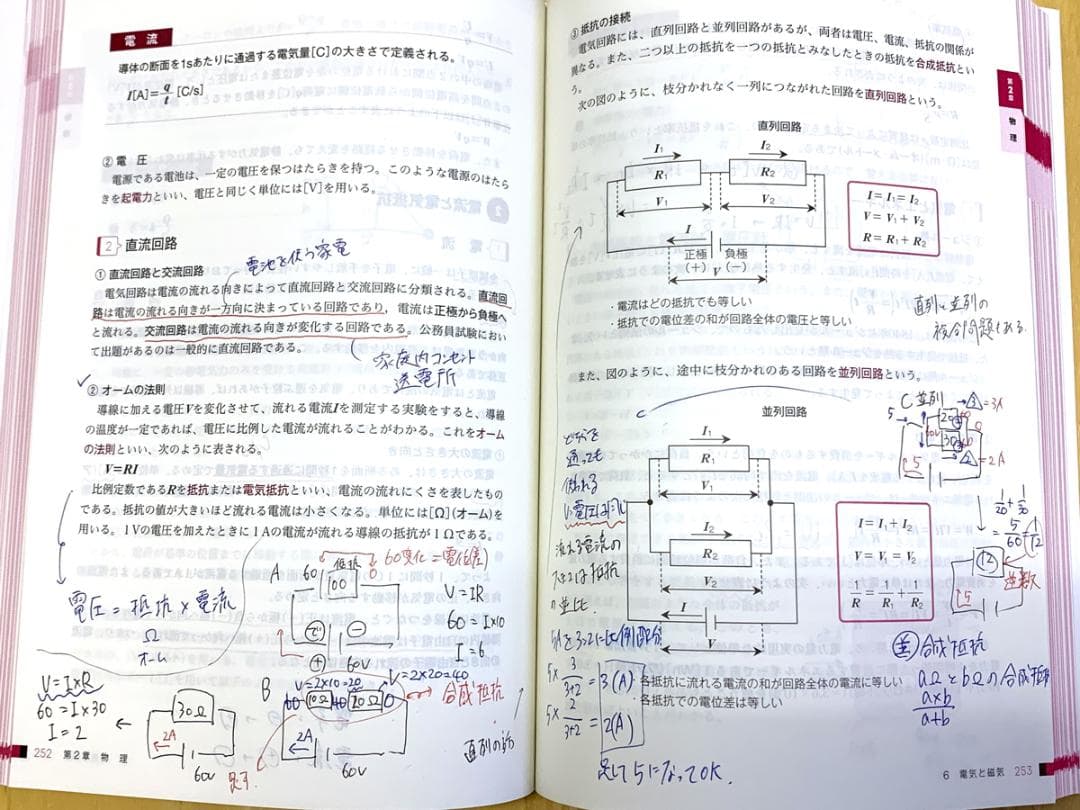 電流
導体の断面を1sあたりに通過する電気量[C]の大きさで定義される。
I[A]=q/t [C/s]
② 電 圧
電源である電池は、一定の電圧を保つはたらきを持つ。このような電源のはたら
きを起電力といい、電圧と同じく単位には[V]を用いる。
2 直流回路
電池を使う家電
① 直流回路と交流回路
電気回路は電流の流れる向きによって直流回路と交流回路に分類される。直流回
路は電流の流れる向きが一方向に決まっている回路であり、電流は正極から負極へ
と流れる。交流回路は電流の流れる向きが変化する回路である。公務員試験におい
て出題があるのは一般的に直流回路である。
家庭内コンセント
送電所
② オームの法則
導線に加える電圧Vを変化させて、流れる電流Iを測定する実験をすると、導線
の温度が一定であれば、電圧に比例した電流が流れることがわかる。これをオーム
の法則といい、次のように表される。
V=RI
比例定数であるRを抵抗または電気抵抗といい、電流の流れにくさを表したもの
である。抵抗の値が大きいほど流れる電流は小さくなる。単位には[Ω](オーム)を
用いる。1Vの電圧を加えたときに1Aの電流が流れる導線の抵抗が1Ωである。
電圧 = 抵抗 × 電流
Ω
オーム
A 60 抵抗 10 0 60変化=電位(差)
V=IR
60=I×10
I=6
⊖
⊕
60V
V=I×R
60=I×30
I=2
30Ω
2A
60V
B
V=2×10=20
V=2×20=40
60 10Ω 40 20Ω 0
合成抵抗
2A
60V
足す
直列の時
252 第2章 物 理
③ 抵抗の接続
電気回路には、直列回路と並列回路があるが、両者は電圧、電流、抵抗の関係が
異なる。また、二つ以上の抵抗を一つの抵抗とみなしたときの抵抗を合成抵抗とい
う。
次の図のように、枝分かれなく一列につながれた回路を直列回路という。
直列回路
I1 I2
R1 R2
V1 V2
I
正極 負極
(+) (−)
V
I = I1 = I2
V = V1 + V2
R = R1 + R2
・電流はどの抵抗でも等しい
・抵抗での電位差の和が回路全体の電圧と等しい
直列と並列の
複合問題もある
また、図のように、途中に枝分かれのある回路を並列回路という。
並列回路
I1
R1
V1
I2
R2
V2
I
V
I = I1 + I2
V = V1 = V2
1/R = 1/R1 + 1/R2
どちらを
通っても
流れる電流の
の逆比
5Aを3:2に比例配分
5×3/3+2=3(A)
5×2/3+2=2(A)
足して5になってOK.
C 並列
5
20
30
60V
3 =3A
2 =2A
5
1/20+1/30
=5/60=1/12
12
逆数
5
合成抵抗
aΩとbΩの合成抵抗
a×b/a+b
各抵抗に流れる電流の和が回路全体の電流に等しい
各抵抗での電位差は等しい
第2章
物理
6 電気と磁気 253